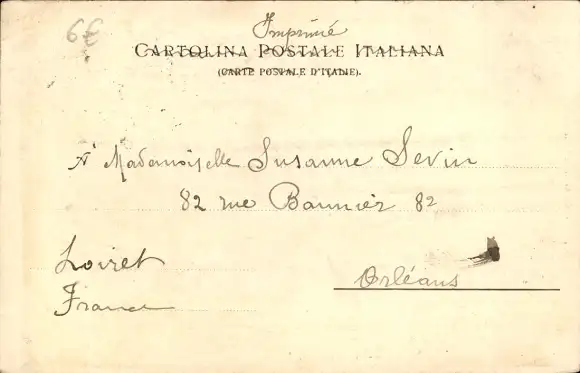 6€
Imprimé
CARTOLINA POSTALE ITALIANA
(CARTE POSTALE D'ITALIE).
A Mademoiselle Susanne Sevin
82 rue Bannier 82
Loiret
Orléans
France